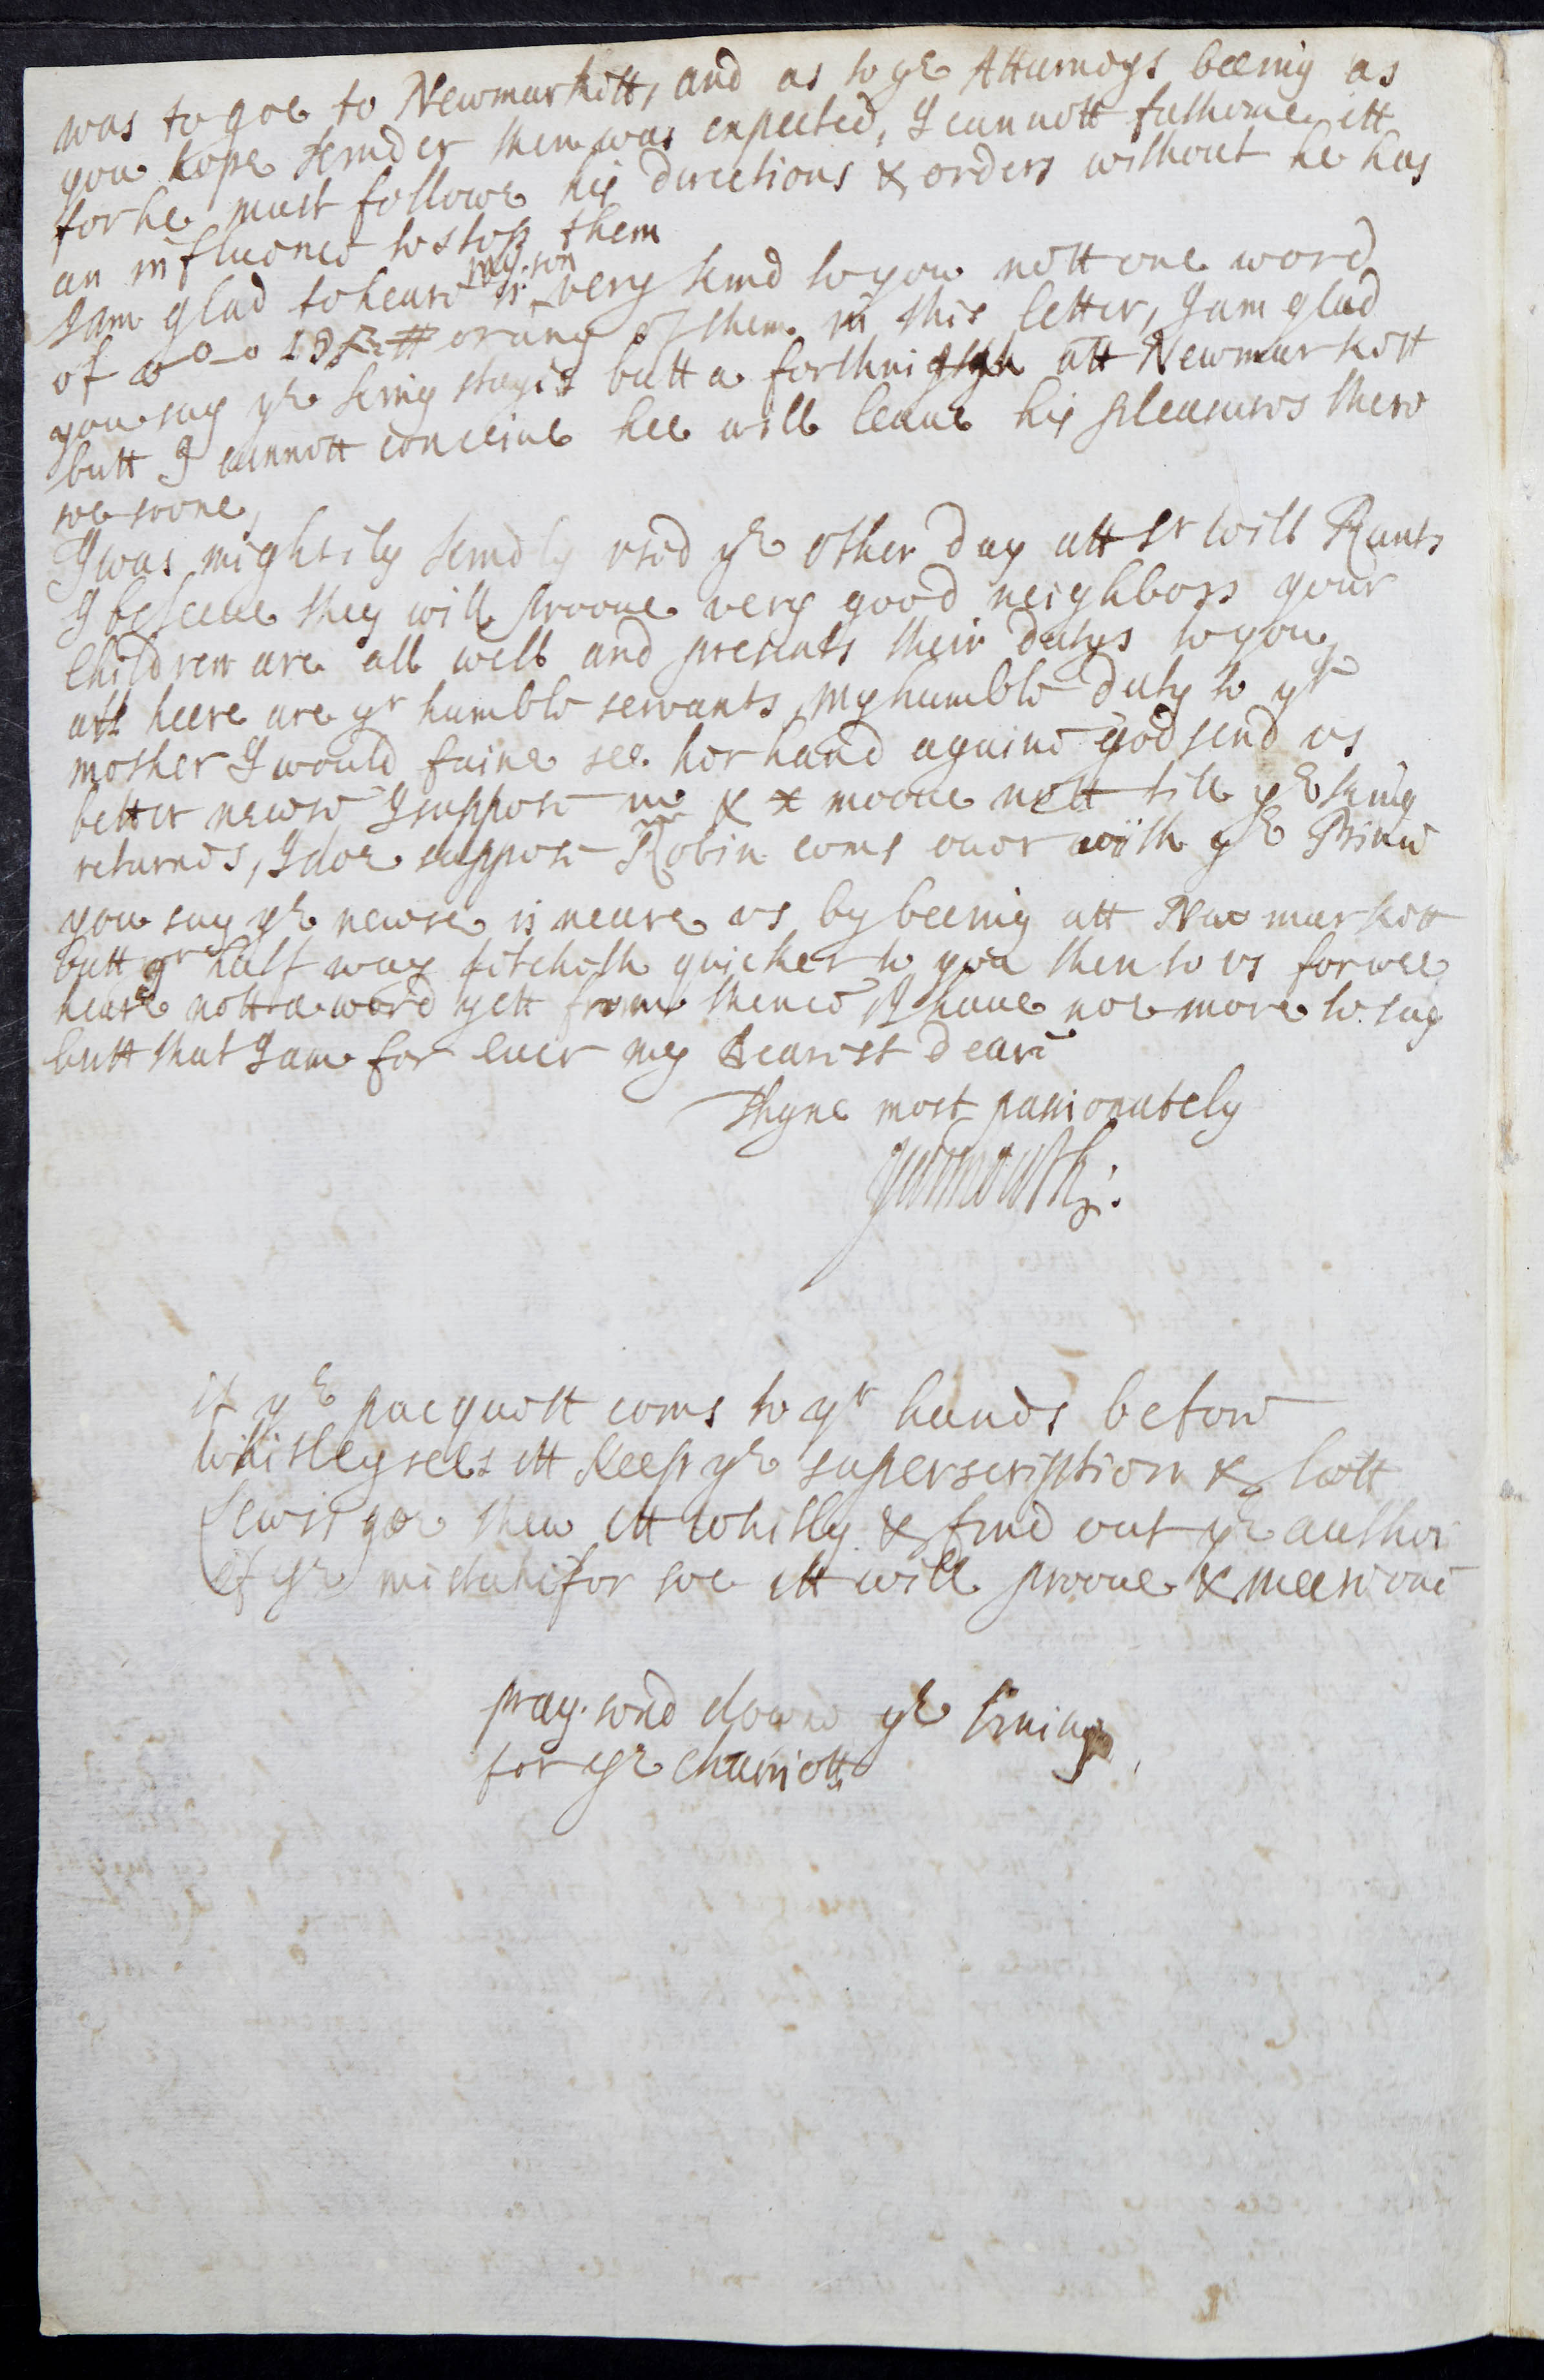 was to goe to Newmarkitt, and as to ye Atturneys beeing as
you hope kinder then was expected, I cannott fathome itt
for he must followe his directions & orders without he has
an influence to stop them
I am glad to heare my. son is very kind to you nott one word
of or any of them in this letter, I am glad
you say ye king stayes butt a forthnight att Newmarkitt
butt I cannott conceive hee will leave his pleasures there
soe soone,
I was mightily kindly used ye other day att Sr Will Rants
I beleeue they will prooue very good neighbors your
Children are all well and presents their dutys to you,
all heere are yr humble servants, my humble duty to yr
mother I would faine see her hand againe god send us
better newse I suppose & mooue nott till ye king
returnes, I doe suppose Robin coms ouer with ye Prince
you say ye newse is neare us by beeing att New markitt
butt yr half way fitcheth quicker to you then to us for wee
heare nott a word yett from thence I haue noe more to say
butt that I am for euer my dearest deare
Thyne most passionately
Yarmouth:
if ye pacquett coms to yr hands before
Whitley sees itt keep ye superscription & lett
Lewis goe shew itt Whitly & find out ye author
of ye mistake for soe itt will prooue &
pray. send downe ye lining
for ye Chariott